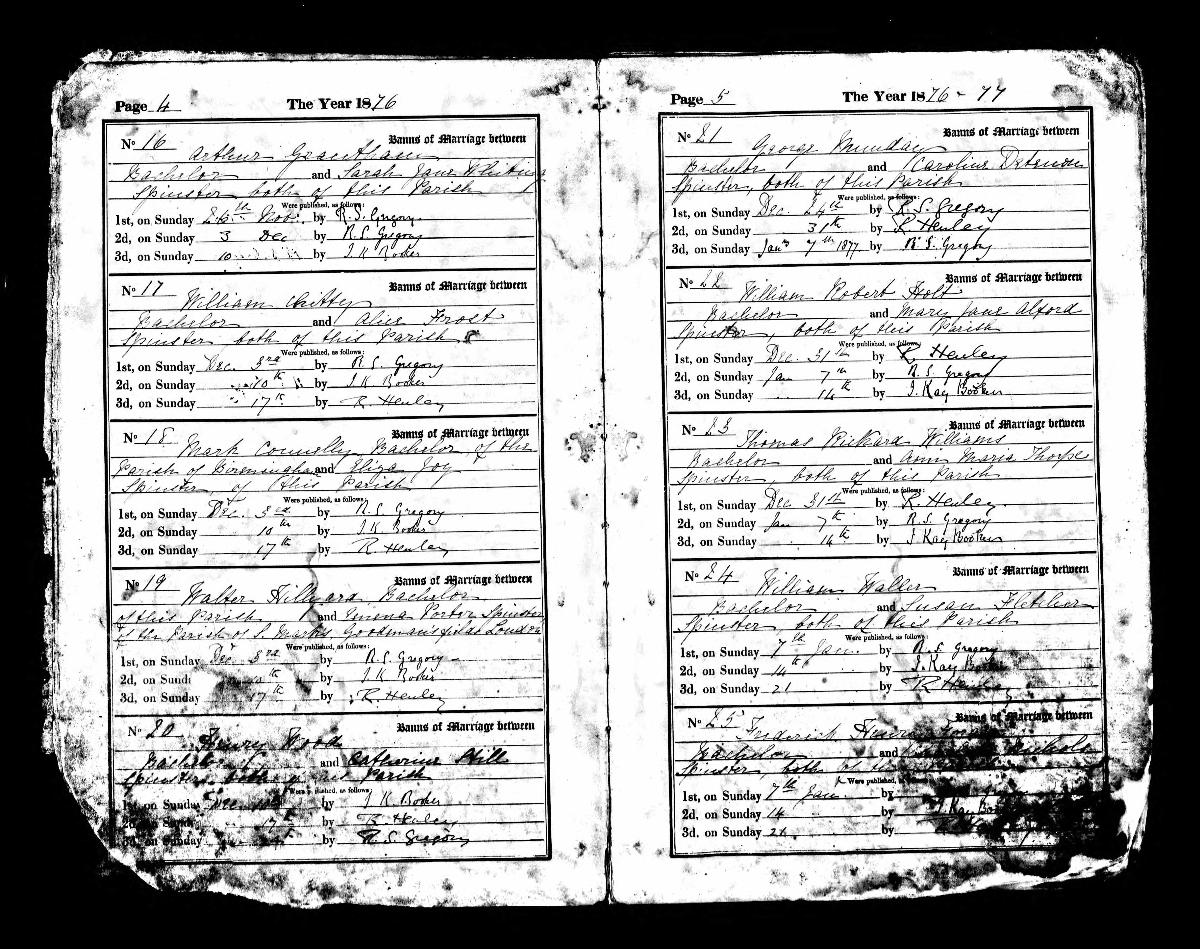 Page 4 The Year 1876
No 16 Banns of Marriage between
Arthur Grantham
Bachelor and Sarah Jane Whiting
Spinster both of this Parish
Were published, as follows:
1st, on Sunday 26th Nov. by R. S. Gregory
2d, on Sunday 3 Dec by R. S. Gregory
3d, on Sunday 10 by J. K. Booker
No 17 Banns of Marriage between
William Chitty
Bachelor and Alice Frost
Spinster both of this Parish
Were published, as follows:
1st, on Sunday Dec. 3rd by R. S. Gregory
2d, on Sunday 10th by J. K. Booker
3d, on Sunday 17th by R. Henley
No 18 Banns of Marriage between
Mark Connelly Bachelor, of the
Parish of Birmingham and Eliza Joy
Spinster, of this Parish
Were published, as follows:
1st, on Sunday Dec. 3rd by R. S. Gregory
2d, on Sunday 10th by J. K. Booker
3d, on Sunday 17th by R. Henley
No 19 Banns of Marriage between
Walter Hillyard Bachelor
of this Parish and Emma Porter Spinster
of the Parish of S. Marks Goodmansfields London
Were published, as follows:
1st, on Sunday Dec. 3rd by R. S. Gregory
2d, on Sunday by J. K. Booker
3d, on Sunday 17th by R. Henley
No 20 Banns of Marriage between
Henry Wood
Bachelor and Catherine Hill
Spinster, both Parish
Were published, as follows:
1st, on Sunday by J. K. Booker
Sunday 17th by R. Henley
on Sunday by R. S. Gregory
Page 5 The Year 1876-77
No 21 Banns of Marriage between
George Munday
Bachelor and Caroline
Spinster, both of this Parish
Were published, as follows:
1st, on Sunday Dec. 24th by R. S. Gregory
2d, on Sunday 31th by R. Henley
3d, on Sunday Jany 7th 1877 by R. S. Gregory
No 22 Banns of Marriage between
William Robert Holt
Bachelor and Mary Jane Alford
Spinster, both of this Parish
Were published, as follows:
1st, on Sunday Dec. 31th by R. Henley
2d, on Sunday Jan 7th by R. S. Gregory
3d, on Sunday 14th by J. Kay Booker
No 23 Banns of Marriage between
Thomas Rickard Williams
Bachelor and Ann Maria Thorpe
Spinster, both of this Parish
Were published, as follows:
1st, on Sunday Dec 31st by R. Henley
2d, on Sunday Jan 7th by R. S. Gregory
3d, on Sunday 14th by J. Kay Booker
No 24 Banns of Marriage between
William Waller
Bachelor and Susan Fletcher
Spinster both of this Parish
Were published, as follows:
1st, on Sunday 7th Jan. by R. S. Gregory
2d, on Sunday 14th by J. Kay Booker
3d, on Sunday 21 by R. Henley
No 25 Banns of Marriage between
Frederick Henry
Bachelor and Nichols
Spinster, both of this
Were published, as follows:
1st, on Sunday 7th Jan by
2d, on Sunday 14 by J. Kay Booker
3d, on Sunday 21 by